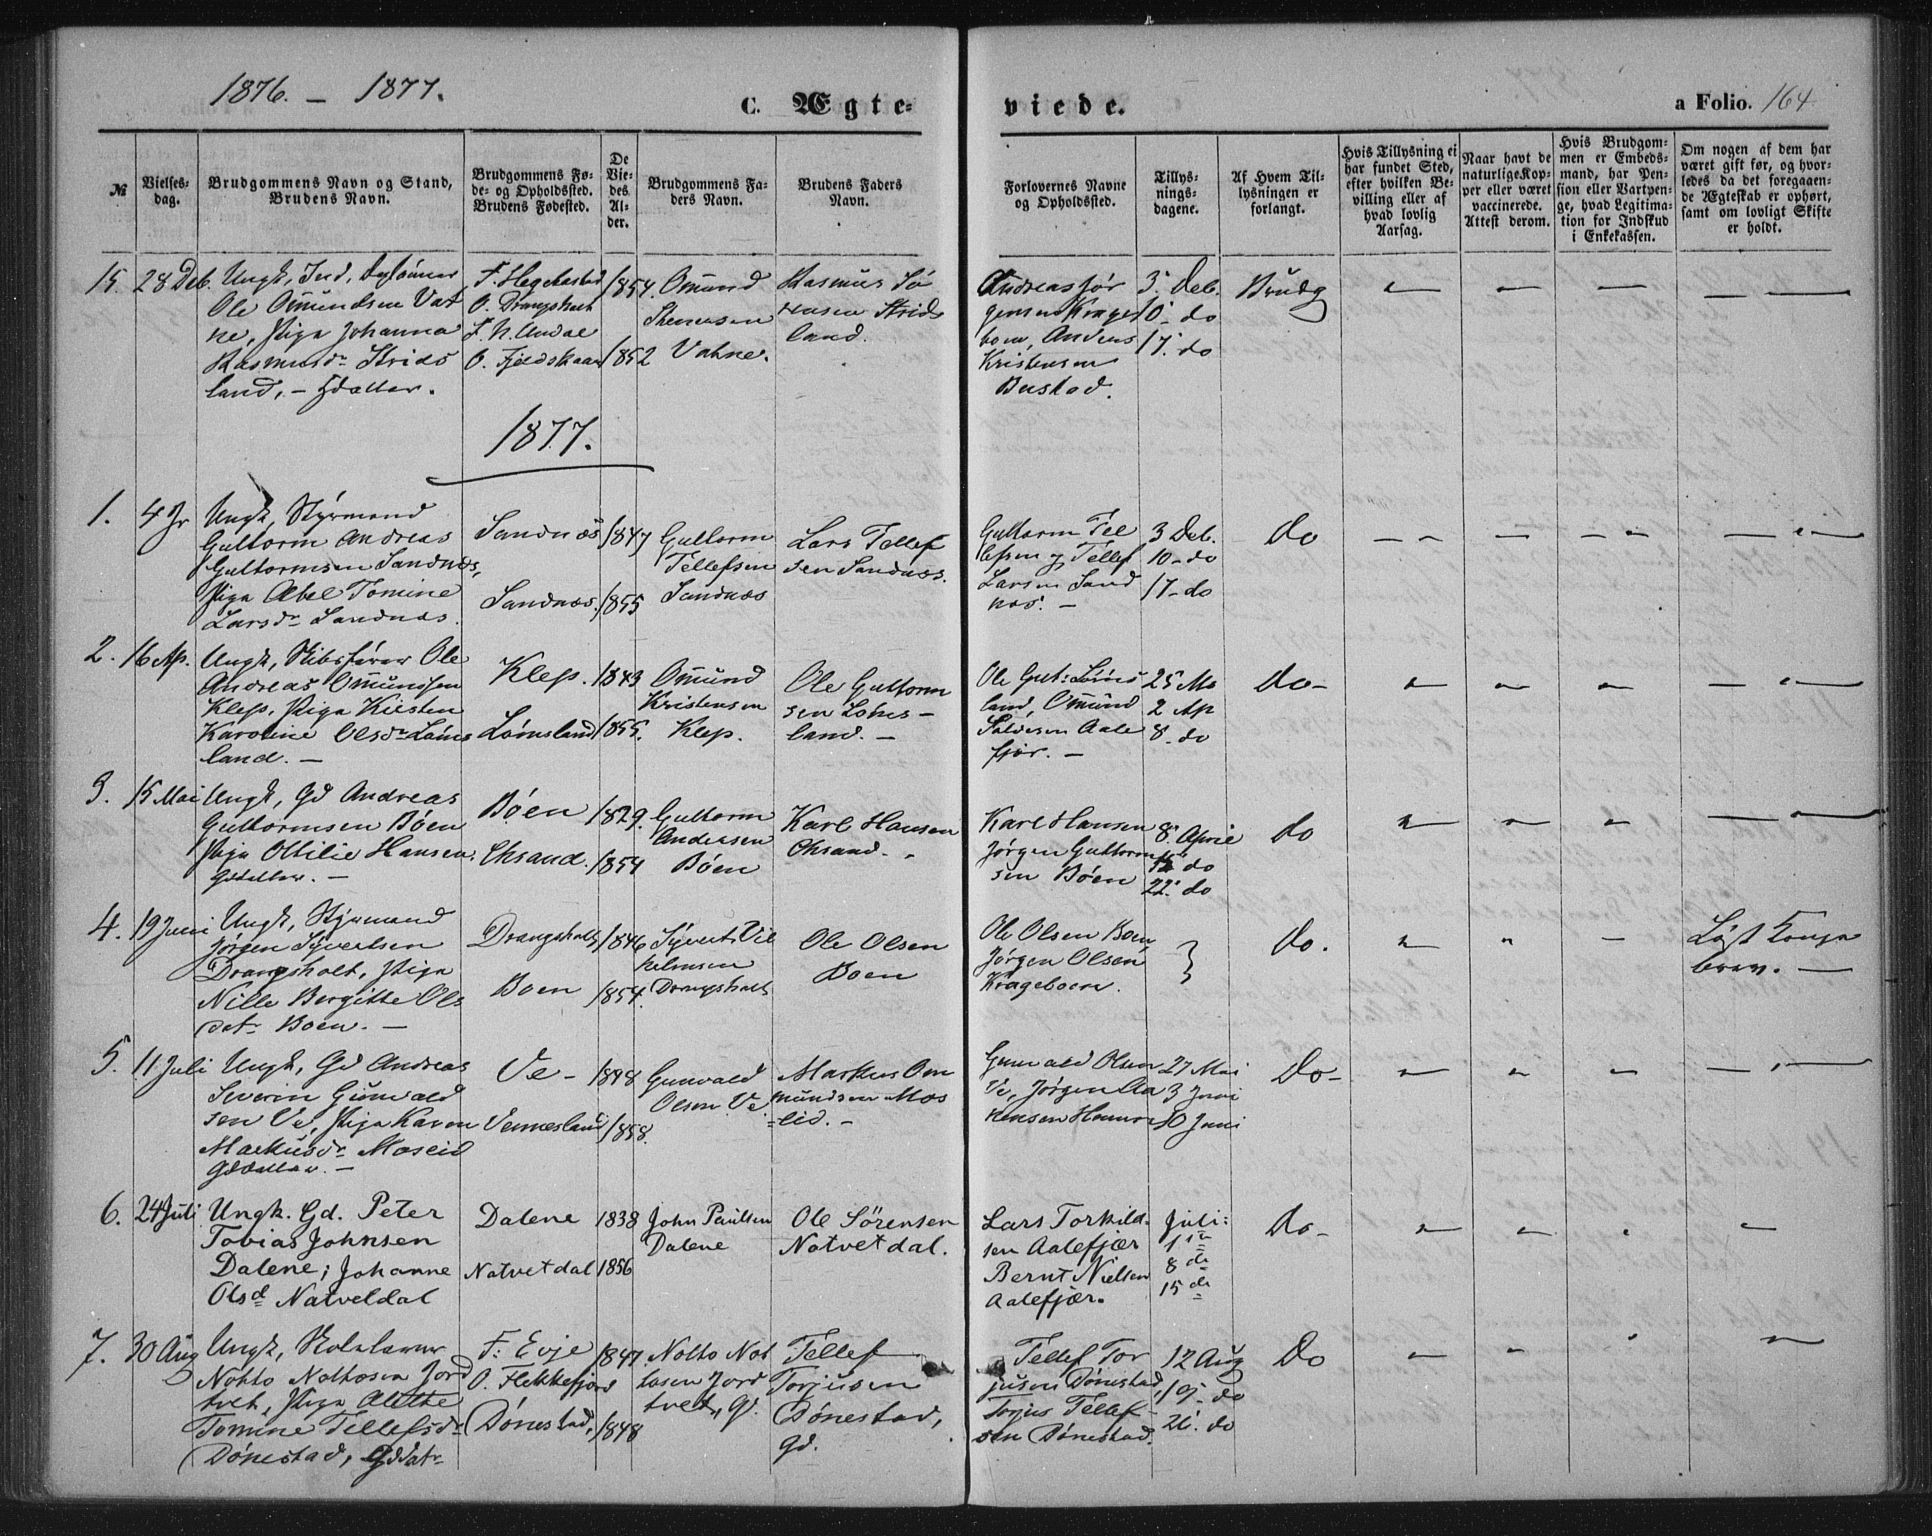 1876. – 1877.
C. Ægteviede.
a Folio. 164
№
Vielsesdag.
Brudgommens Navn og Stand,
Brudens Navn.
Brudgommens Føde-
og Opholdssted.
Brudens Fødested.
De
Viedes
Alder.
Brudgommens Faders
Navn.
Brudens Faders
Navn.
Forlovernes Navne
og Opholdssted.
Tillysningsdagene.
Af Hvem Tillysningen er
forlangt.
Hvis Tillysning ei
har fundet Sted,
efter hvilken Bevilling
eller af
hvad lovlig
Aarsag.
Naar havt de
naturlige Kopper
eller været
vaccinerede.
Attest derom.
Hvis Brudgommen
er Embedsmand,
har Pension
eller Vartpenge,
hvad Legitimation
for Indskud
i Enkekassen.
Om nogen af dem har
været gift før, og hvorledes
da det foregaaende
Ægteskab er ophørt,
samt om lovligt Skifte
er holdt.
15. 28 Deb.
Ungk, Ind,
Ole Omundsen Vat
ne, Piga Johanna
Rasmusdr Strids
land, – Gdatter.
F. Hegebostad
O. Drangsholt
F. N. Undal
O. Fjeldskaar
1854.
1852
Omund
Vatne.
Rasmus Sø
rensen Strids
land.
Andreas Jør
gensen Krage
boen, Anders
Kristensen
Bustad.
3. Deb.
10. do
17. do
Brudg
– – – – –
1877.
1. 4 Jr
Ungk, Styrmand
Guttorm Andreas
Guttormsen Sandnæs,
Piga Abel Tomine
Larsdr Sandnæs.
Sandnæs
Sandnæs.
1847
1855
Guttorm
Tellefsen
Sandnæs
Lars Tellef
sen Sandnæs.
Guttorm Tel
lefsen og Tellef
Larsen Sand
næs. –
3 Deb.
10 – do
17 – do
Do
– – – – –
2. 16 Ap.
Ungk, Skibsfører Ole
Andreas Omundsen
Klep, Piga Kirsten
Karoline Olsdr Løms
land. –
Klep.
Lømsland
1843
1855.
Omund
Kristensen
Klep.
Ole Guttorm
sen Løms –
land. –
Ole Gut: Løms
land, Omund
Salvesen Aale
fjær. –
25 Ma
2 Ap
8. do
Do –
– – – – –
3. 15 Mai
Ungk, Gd Andreas
Guttormsen Bøen
Piga Ottilie Hansen,
Gddatter. –
Bøen
Eksand.
1829.
1854
Guttorm
Andersen
Bøen
Karl Hansen
Eksand.
Karl Hansen
Jørgen Guttorm
sen Bøen
8. April
15 do
22. do
Do
– – – – –
4. 19 Juni
Ungk, Styrmand
Jørgen Syvertsen
Drangsholt, Piga
Nille Bergitte Ols
datr Boen. –
Drangsholt
Boen
1846
1854.
Syvert Vil
helmsen
Drangsholt
Ole Olsen
Boen
Ole Olsen Boen,
Jørgen Olsen
Krageboen.
}
Do.
– – –
Løst Konge
brev. –
5. 11 Juli
Ungk, Gd Andreas
Severin Gunvald
sen Ve, Piga Karen
Markusdr Moseid
Gddatter. –
Ve –
Vennesland
1848
1858.
Gunvald
Olsen Ve.
Markus Om
mundsen Mos
eid. –
Gunvald Olsen
Ve, Jørgen Aa
nensen Hamre
27 Mai
3 Juni
10 Juni
Do –
– – – – –
6. 24 Juli
Ungk. Gd. Peter
Tobias Johnsen
Dalene; Johanne
Olsd Natvetdal
Dalene
Natvetdal
1838
1856
John Paulsen
Dalene
Ole Sörensen
Natvetdal.
Lars Torkild-
sen Aalefjær
Bernt Nielsen
Aalefjær.
Juli:
1ste
8 de
15 de
Do –
– – – –
7. 30 Aug
Ungk, Skolelærer
Notto Nottosen Jord
tvet, Piga Alethe
Tomine Tellefsdr
Dönestad, Gddatr
F: Evje
O. Flekkefjord
Dönestad,
1847.
1848
Notto Not
tosen Jord
tvet, Gd.
Tellef
Torjusen
Dönestad,
Gd.
Tellef Tor
jusen Dönestad,
Torjus Tellef –
sen Dönestad.
12 Aug
19. do
26. do
Do
– – – –